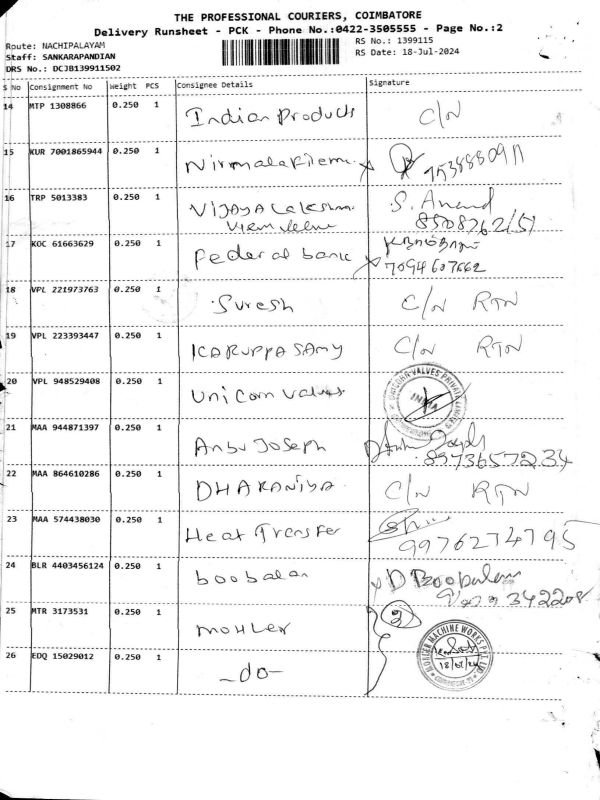 THE PROFESSIONAL COURIERS, COIMBATORE
Delivery Runsheet - PCK - Phone No.:0422-3505555 - Page No.:2
Route: NACHIPALAYAM RS No.: 1399115
Staff: SANKARAPANDIAN RS Date: 18-Jul-2024
DRS No.: DCJB139911502
S No Consignment No Weight PCS Consignee Details Signature
14 MTP 1308866 0.250 1 Indian Products C/N
15 KUR 7001865944 0.250 1 Nirmala
16 TRP 5013383 0.250 1 VIJAYA Lakshmi S. Anand
17 KOC 61663629 0.250 1 Federal bank
7094607662
18 VPL 221973763 0.250 1 Suresh C/N RTN
19 VPL 223393447 0.250 1 KARUPPASAMY C/N RTN
20 VPL 948529408 0.250 1 Unicorn valves UNICORN VALVES PRIVATE LIMITED
INDIA
21 MAA 944871397 0.250 1 Anbu Joseph
8973657234
22 MAA 864610286 0.250 1 DHARANIYA C/N RTN
23 MAA 574438030 0.250 1 Heat Transfer
9976274795
24 BLR 4403456124 0.250 1 boobalan D Boopalan
25 MTR 3173531 0.250 1 MOHLER 2
26 EDQ 15029012 0.250 1 -do- MACHINE WORKS PVT. LTD